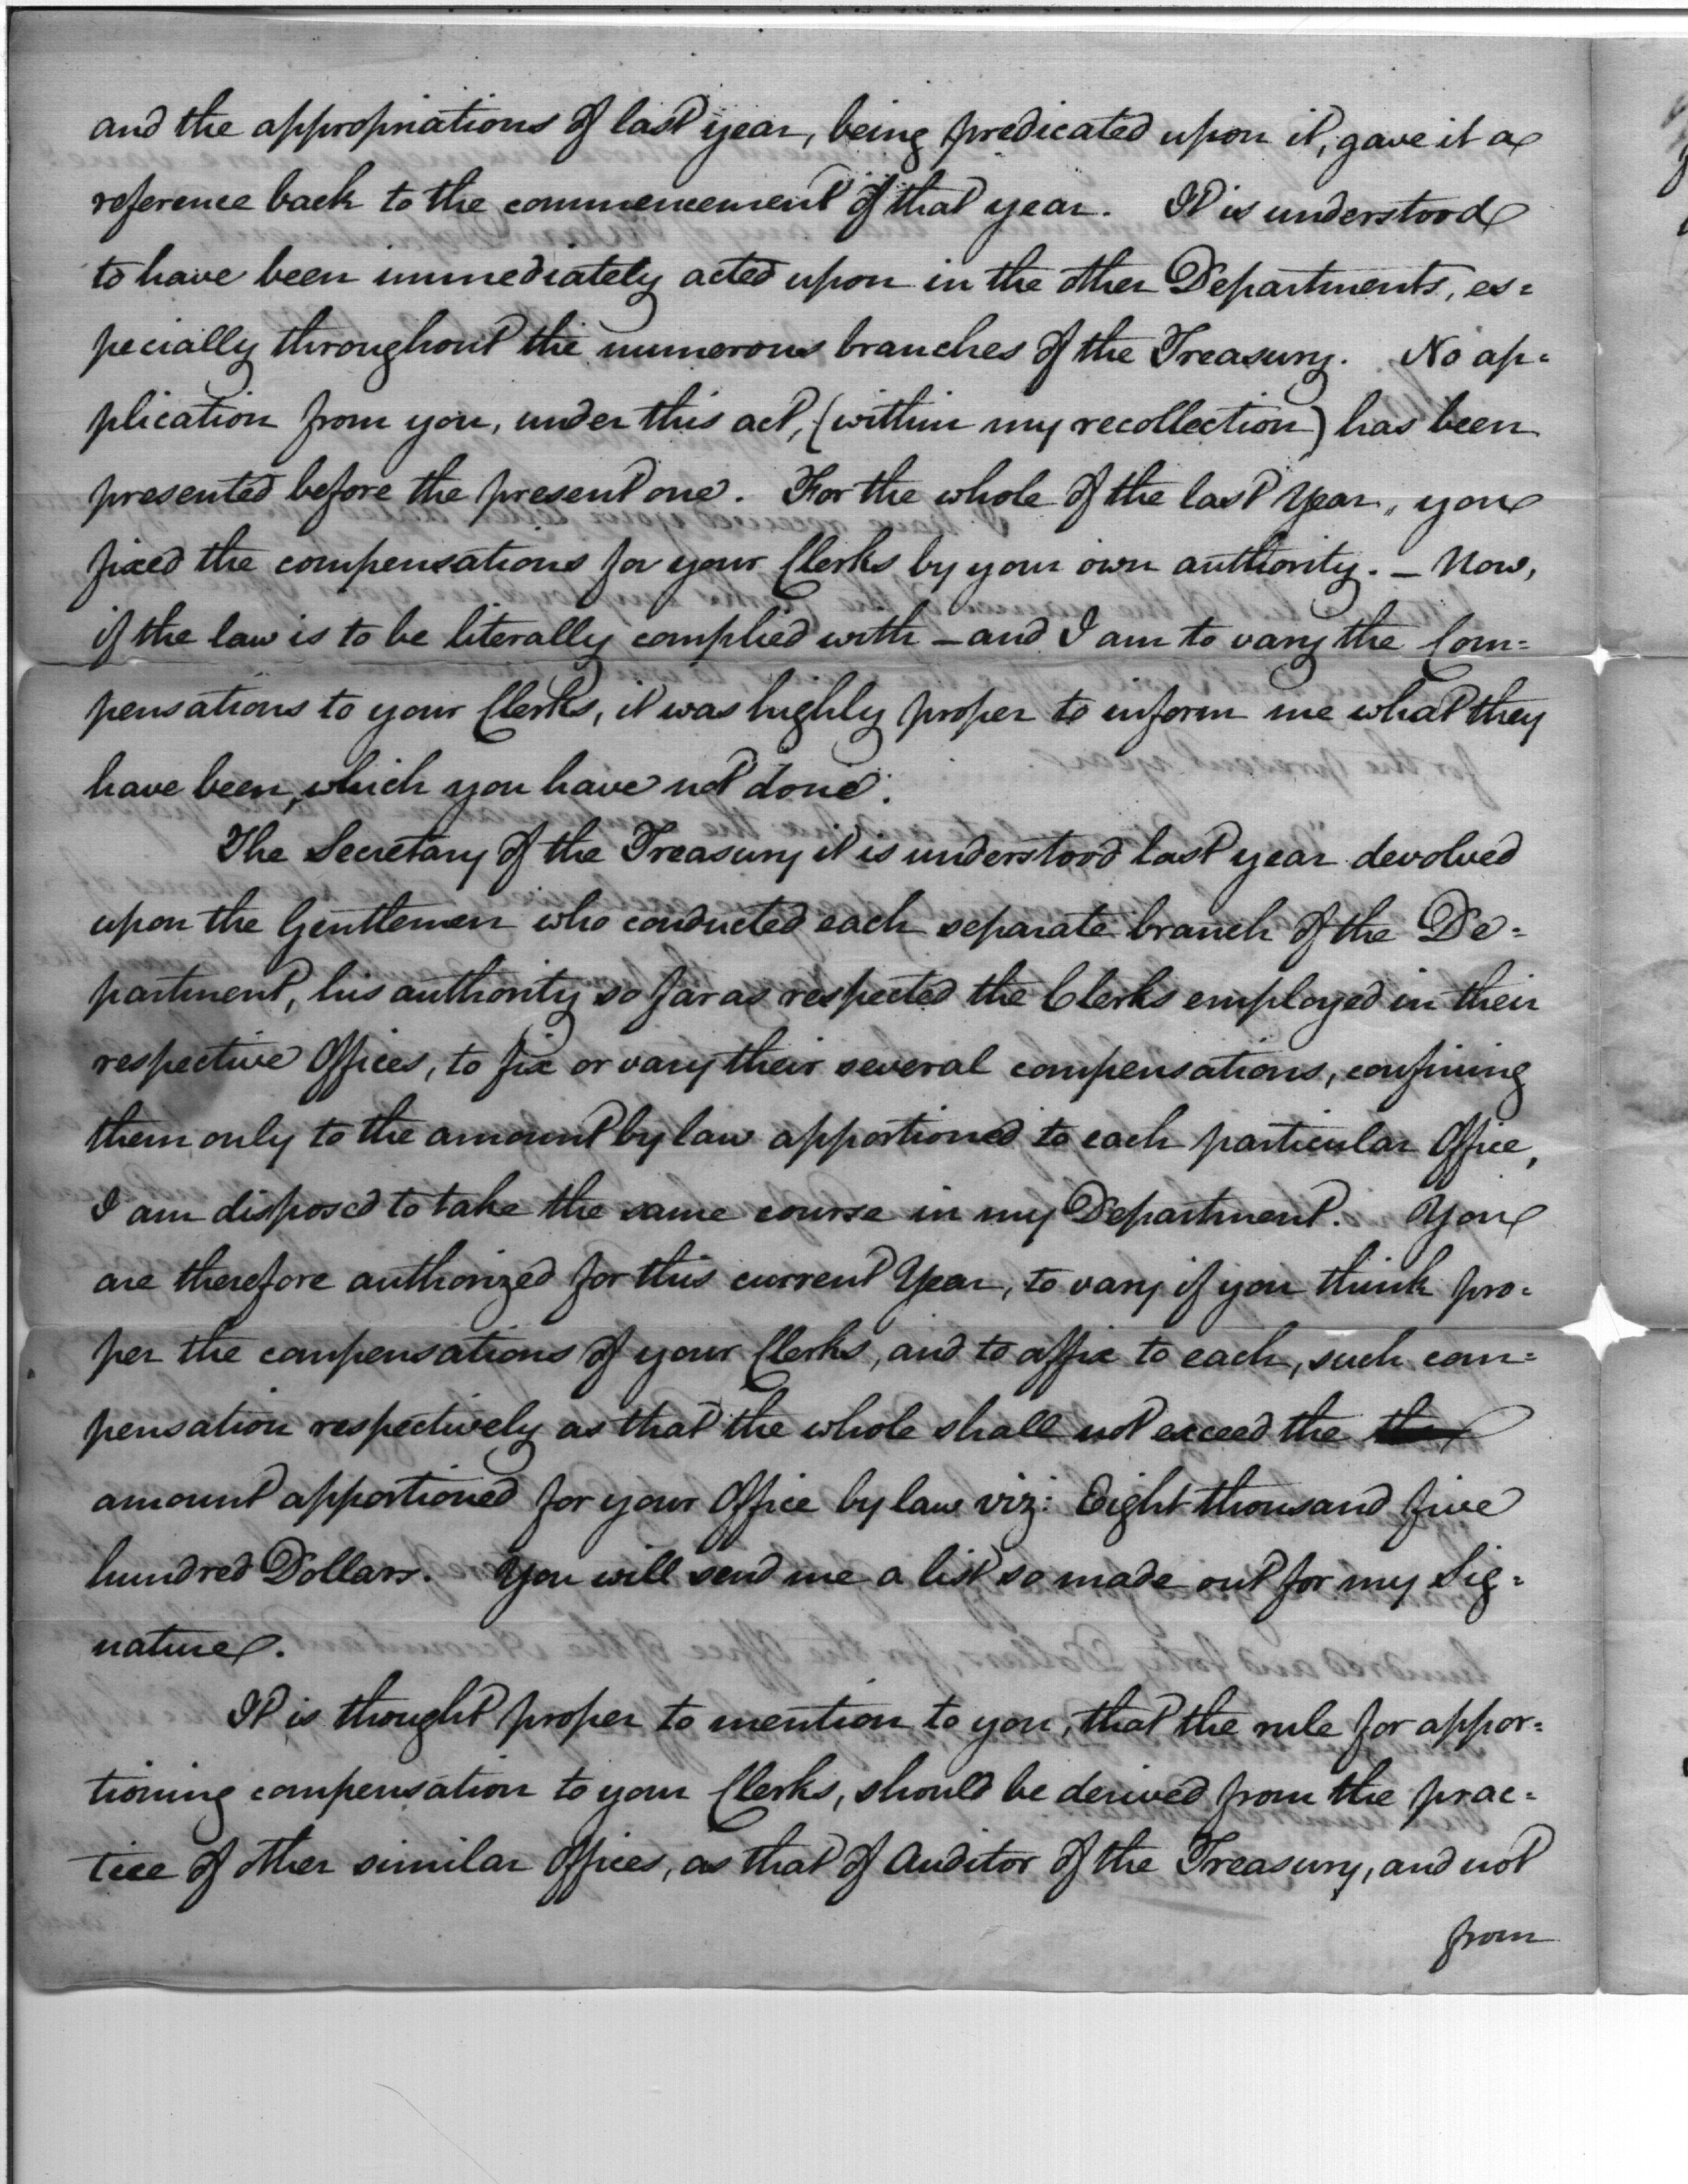 and the appropriations of last year, being predicated upon it, gave it a
reference back to the commencement of that year. It is understood
to have been immediately acted upon in the other Departments, es=
pecially throughout the numerous branches of the Treasury. No ap=
plication from you, under this act, (within my recollection) has been
presented before the present one. For the whole of the last Year, you
fixed the compensations for your Clerks by your own authority. – Now,
if the law is to be literally complied with – and I am to vary the Com=
pensations to your Clerks, it was highly proper to inform me what they
have been, which you have not done.
The Secretary of the Treasury it is understood last year devolved
upon the Gentlemen who conducted each separate branch of the De=
partment, his authority so far as respected the Clerks employed in their
respective Offices, to fix or vary their several compensations, confining
them only to the amount by law apportioned to each particular Office,
I am disposed to take the same course in my Department. You
are therefore authorized for this current Year, to vary if you think pro=
per the compensations of your Clerks, and to affix to each, such com=
pensation respectively as that the whole shall not exceed the the
amount apportioned for your Office by law viz: Eight thousand five
hundred Dollars. You will send me a list so made out for my Sig=
nature.
It is thought proper to mention to you, that the rule for appor=
tioning compensation to your Clerks, should be derived from the prac=
tice of other similar Offices, as that of Auditor of the Treasury, and not
from